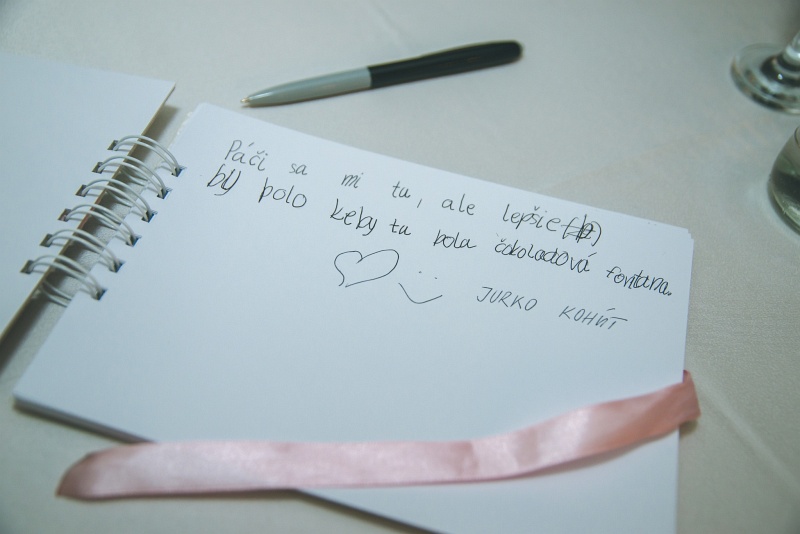 Páči sa mi tu, ale lepšie
by bolo keby tu bola čokoladová fontana.
JURKO KOHÚT